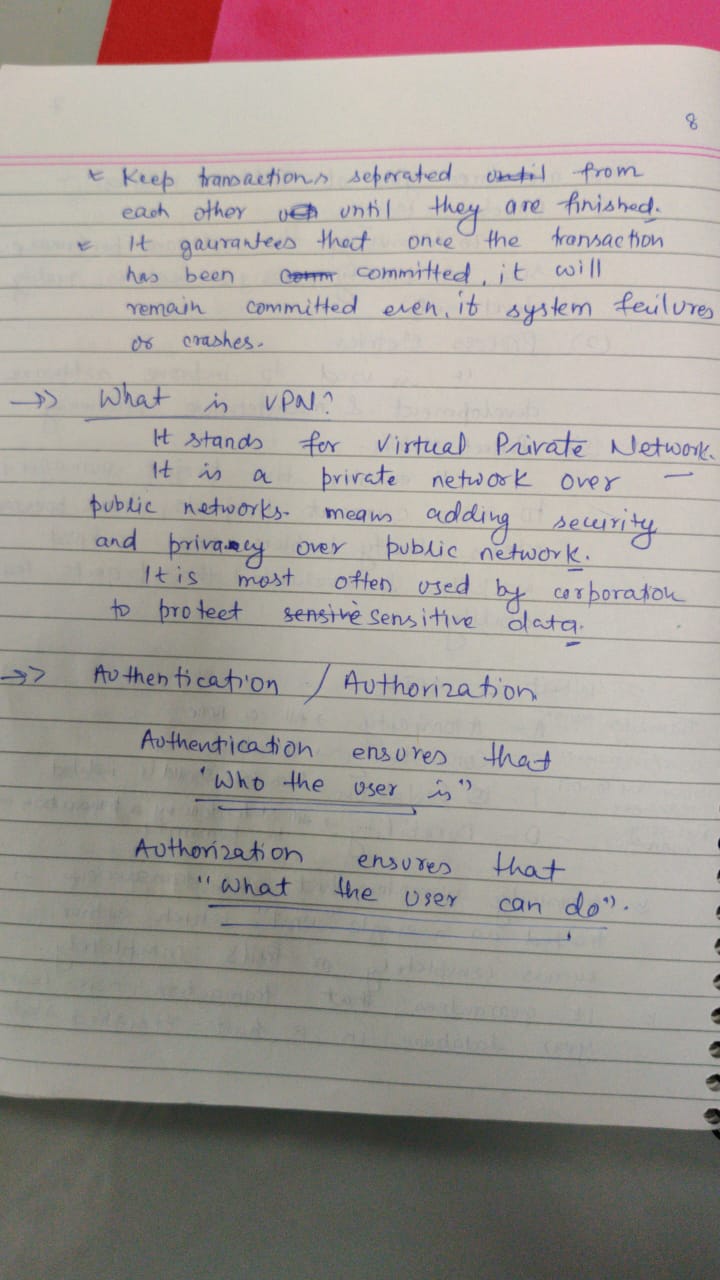 8
* Keep transactions seperated until from
each other uet until they are finished.
* It gaurantees that once the transaction
has been comm committed, it will
remain committed even, if system feilures
or crashes.
→>> What is VPN?
It stands for Virtual Private Network.
It is a private network over
public networks. means adding security
and privacy over public network.
It is most often used by corporation
to protect sensive sensitive data.
→>> Authentication / Authorization
Authentication ensures that
"Who the user is"
Authorization ensures that
"What the user can do".